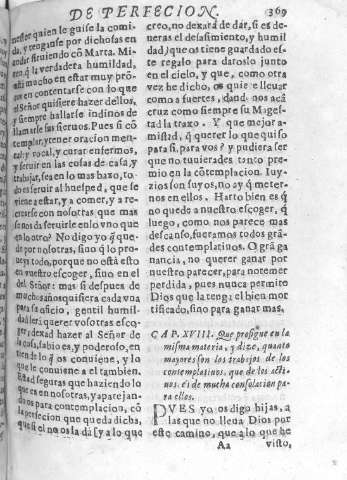 DE PERFECION. 369
nester quien le guise la comi-
da, y tenganse por dichosas en
andar siruiendo cõ Marta. Mi-
ren q̃ la verdadera humildad,
està mucho en estar muy prõ-
tos en contentarse con lo que
el Señor quisiere hazer dellos,
y siempre hallarse indinos de
llamarse sus sieruos. Pues si cõ
templar, y tener oracion men-
tal, y vocal, y curar enfermos,
y seruir en las cosas de casa, y
trabajar, sea en lo mas baxo, to-
do es seruir al huesped, que se
viene a estar, y a comer, y a re-
crearse con nosotras que mas
se nos da seruirle en lo vno que
en lo otro? No digo yo q̃ que-
de por nosotras, sino q̃ lo pro-
ueys todo, porque no està esto
en vuestro escoger, sino en el
del Señor: mas si despues de
muchos años quisiera cada vna
para su oficio, gentil humil-
dad serà querer vosotras esco-
ger; dexad hazer al Señor de
la casa, sabio es, y poderoso, en
tiende lo q̃ os conuiene, y lo
que le conuiene a el tambien.
Estad seguras que haziendo lo
que es en nosotras, y aparejan-
do os para contemplacion, cõ
la perfecion que queda dicha,
que si el no os la dà [y a lo que
creo, no dexarà de dar, si es de
veras el desasimiento, y humil
dad, ] que os tiene guardado es-
te regalo para daroslo junto
en el cielo, y que, como otra
vez he dicho, os quiere lleuar
como a fuertes, dandoos acà
cruz como siempre su Mages-
tad la traxo. Y que mejor a-
mistad, q̃ querer lo que quiso
para si, para vos? y pudiera ser
que no tuuierades tanto pre-
mio en la cõtemplacion. Iuy-
zios son suyos, no ay q̃ meter-
nos en ellos. Harto bien es q̃
no quede a nuestro escoger, q̃
luego, como nos parece mas
descanso, fueramos todos gran-
des contemplatiuos. O grã ga
nancia, no querer ganar por
nuestro parecer, para no temer
perdida, pues nunca permite
Dios que la tenga el bien mor
tificado, sino para ganar mas.
CAP. XVIII. Que prosigue en la
misma materia, y dize, quanto
mayores son los trabajos de los
contemplatiuos, que de los acti-
uos. es de mucha consolacion pa-
ra ellos.
PVES yo os digo hijas, a
las que no lleua Dios por
este camino, que a lo que he
Aa visto,